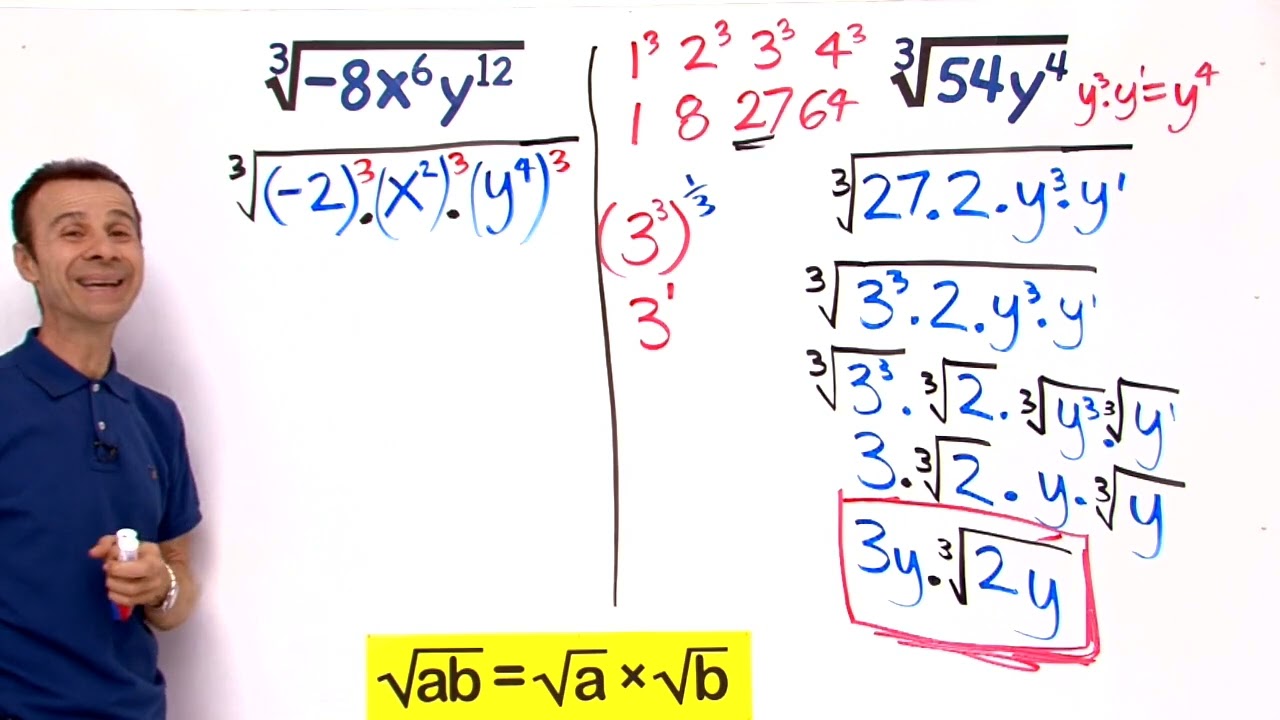 ∛(-8x⁶y¹²)
∛((-2)³·(x²)³·(y⁴)³)
1³ 2³ 3³ 4³
1 8 27 64
(3³)^(1/3)
3¹
∛(54y⁴)
y³·y¹=y⁴
∛(27·2·y³·y¹)
∛(3³·2·y³·y¹)
∛(3³)·∛2·∛(y³)·∛(y¹)
3·∛2·y·∛y
3y·∛(2y)
√ab = √a × √b